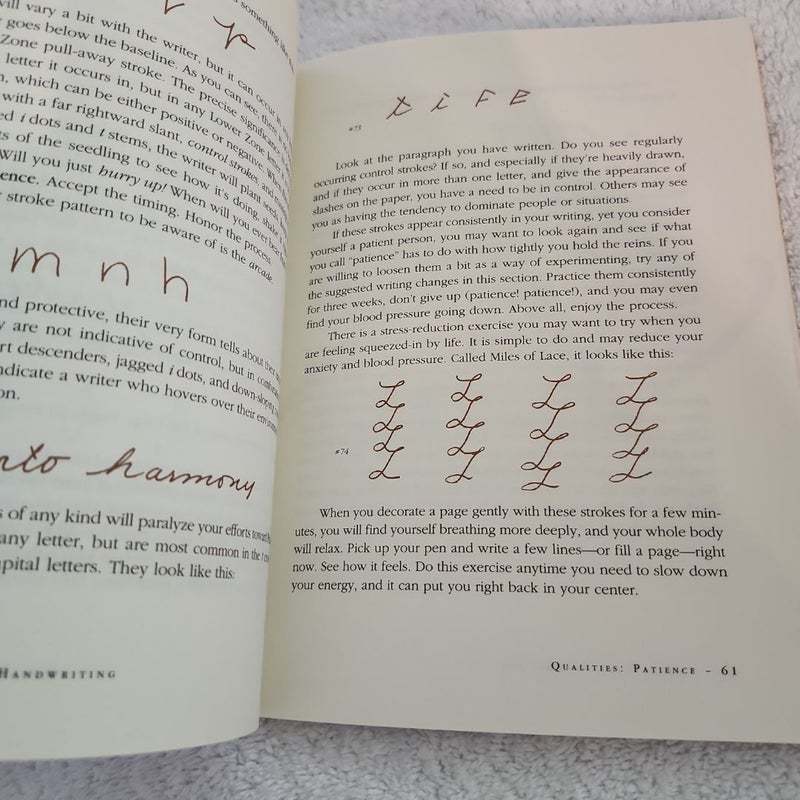 something like
will vary a bit with the writer, but it can occur in
goes below the baseline. As you can see, there
Zone pull-away stroke. The precise significance
letter it occurs in, but in any Lower Zone letter
which can be either positive or negative. When
with a far rightward slant, control strokes, and
i dots and t stems, the writer will plant seeds
of the seedling to see how it's doing, shake
Will you just hurry up! When will you ever
Accept the timing. Honor the process.
stroke pattern to be aware of is the arcade.
m n h
nd protective, their very form tells about their
are not indicative of control, but in
descenders, jagged i dots, and down-sloping
ndicate a writer who hovers over their
on.
nto harmony
of any kind will paralyze your efforts toward
any letter, but are most common in the t
pital letters. They look like this:
HANDWRITING
t i F E
#73
Look at the paragraph you have written. Do you see regularly
occurring control strokes? If so, and especially if they're heavily drawn,
and if they occur in more than one letter, and give the appearance of
slashes on the paper, you have a need to be in control. Others may see
you as having the tendency to dominate people or situations.
If these strokes appear consistently in your writing, yet you consider
yourself a patient person, you may want to look again and see if what
you call "patience" has to do with how tightly you hold the reins. If you
are willing to loosen them a bit as a way of experimenting, try any of
the suggested writing changes in this section. Practice them consistently
for three weeks, don't give up (patience! patience!), and you may even
find your blood pressure going down. Above all, enjoy the process.
There is a stress-reduction exercise you may want to try when you
are feeling squeezed-in by life. It is simple to do and may reduce your
anxiety and blood pressure. Called Miles of Lace, it looks like this:
#74
When you decorate a page gently with these strokes for a few min-
utes, you will find yourself breathing more deeply, and your whole body
will relax. Pick up your pen and write a few lines—or fill a page—right
now. See how it feels. Do this exercise anytime you need to slow down
your energy, and it can put you right back in your center.
QUALITIES: PATIENCE – 61